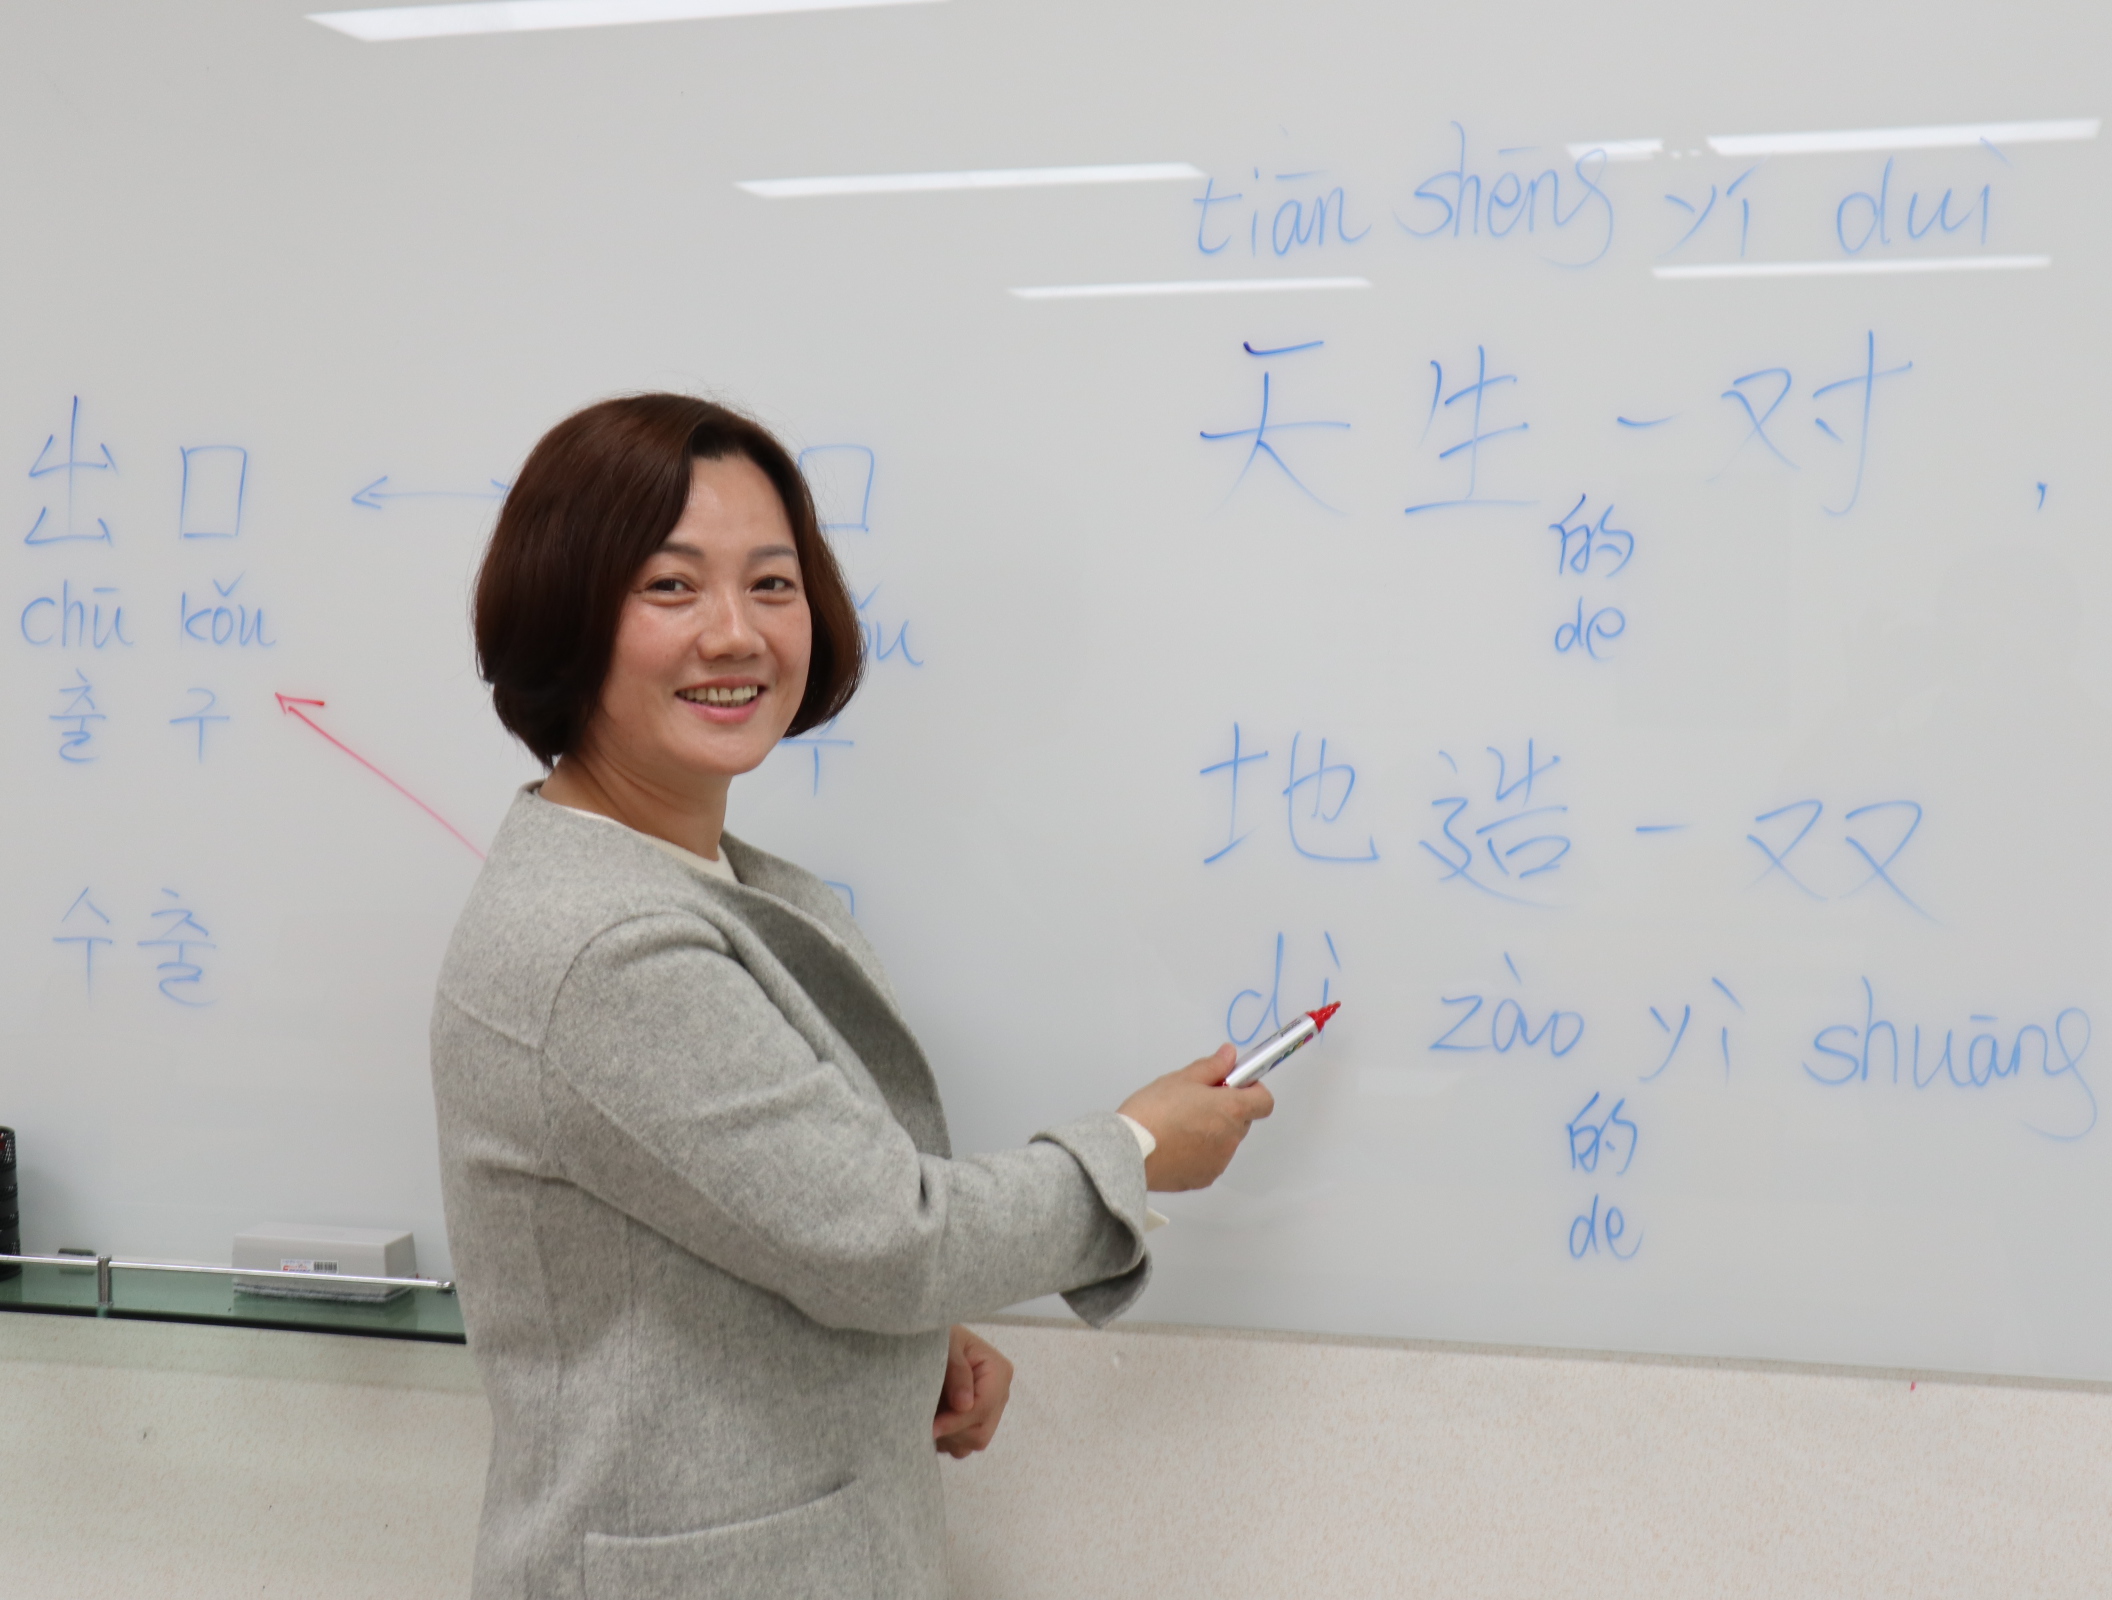 tiān shēng yí duì
天生一对,
的
de
地造一双
dì zào yì shuāng
的
de
出口 ↔ 口
chū kǒu
출구
수출